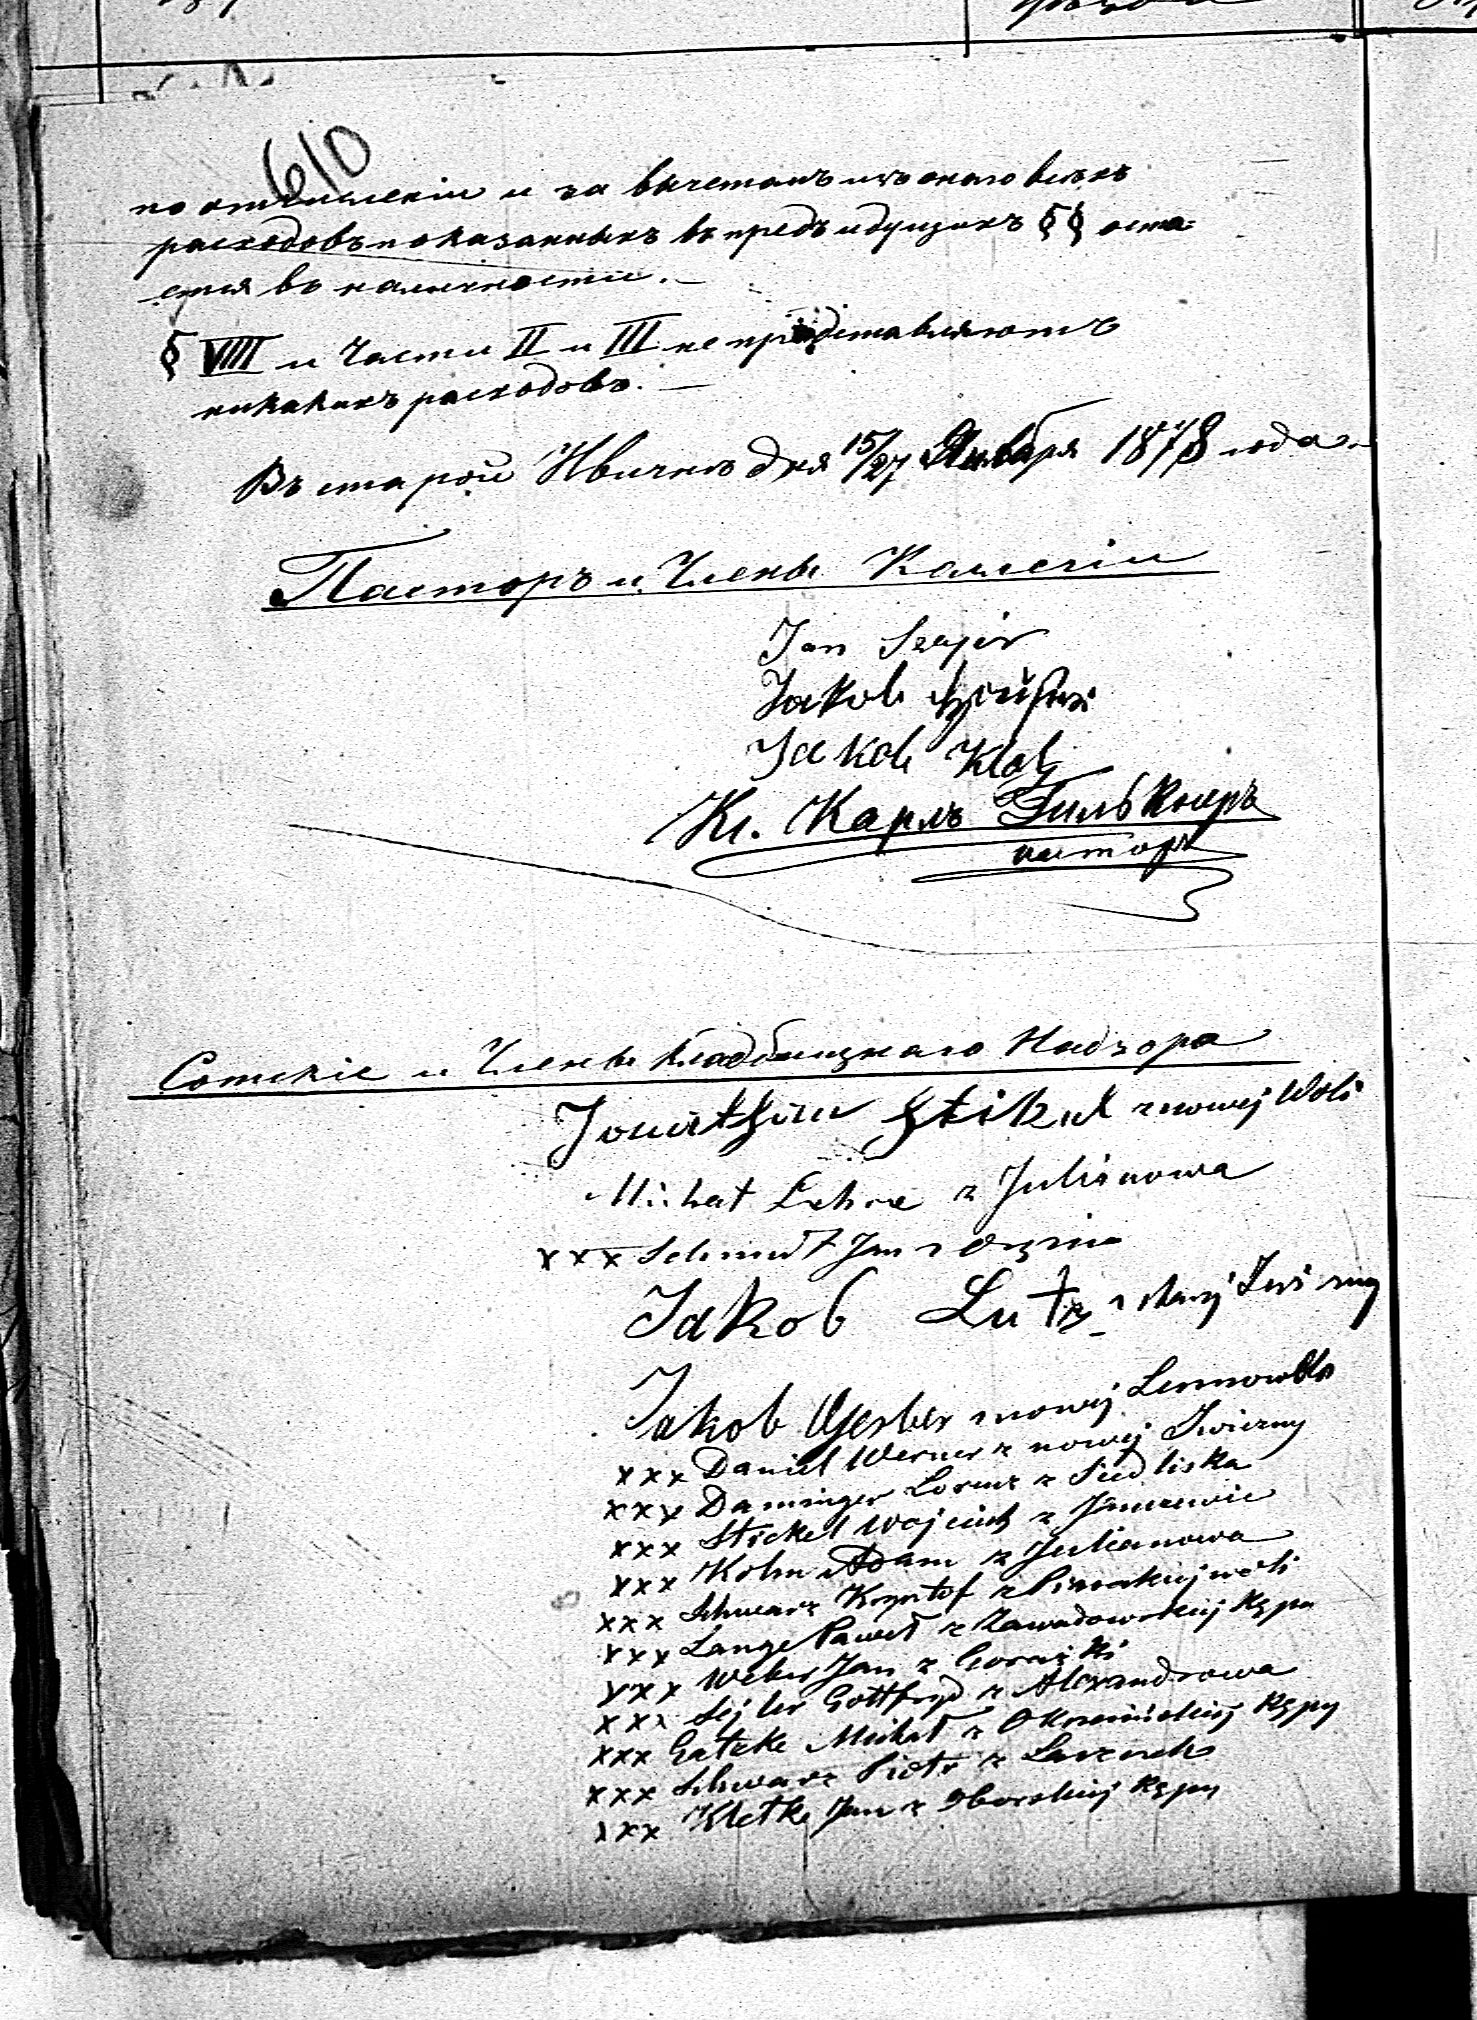 610
по отчисленіи и за вычетомъ изъ онаго всѣхъ
расходовъ показанныхъ въ предъидущихъ §§ оста-
ется въ наличности. —
§ VIII и Части II и III не представляютъ
никакихъ расходовъ. —
Въ старой Ивичнѣ дня 15/27 Января 1878 года
Пасторъ и Члены Коллегіи
Jan
Jakob
Jakob Klotz
Кс. Карлъ
пасторъ
Сотскіе и Члены Кладбищнаго Надзора
Jonathan z nowej Woli
Michał z Julianowa
xxx Schmidt Jan z
Jakob Lutz z starej Iwiczny
Jakob Gerber z nowej
xxx Daniel Werner z nowej Iwiczny
xxx Daminger Lorenz z Siedliska
xxx Stickel Wojciech z
xxx Kohn Adam z Julianowa
xxx Schwarz Krysztof z
xxx Lange Paweł z Zawadowskiej Kępy
xxx Weber Jan z
xxx Sejler Gottfryd z Alexandrowa
xxx Gatzke Michał z Okrzeińskiej Kępy
xxx Schwarz Piotr z
xxx Kletke Jan z Oborskiej Kępy